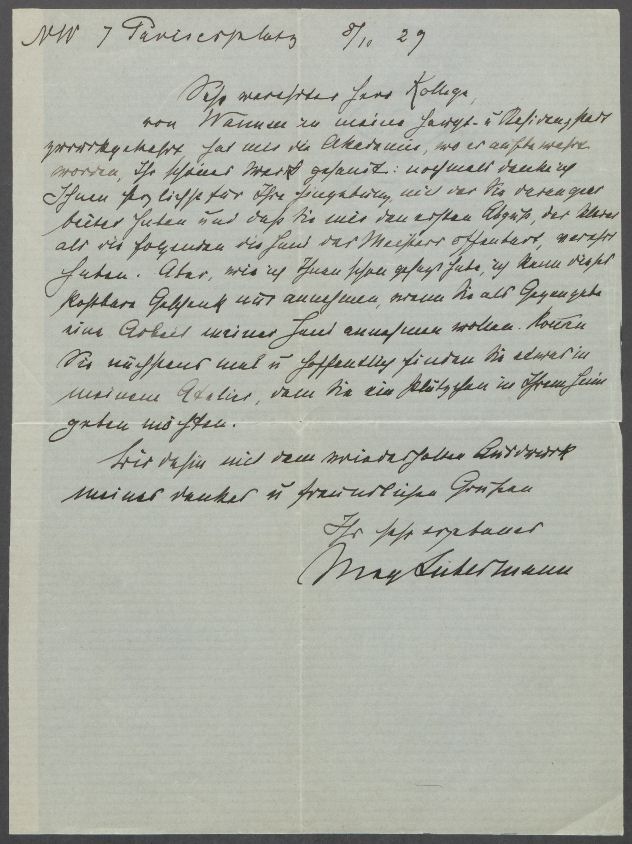 NW 7 Pariserplatz 8/10 29
Sehr verehrter Herr Kollege,
von Wannsee in meine Haupt- u Residenzstadt
zurückgekehrt hat mir die Akademie, wo es aufbewahrt
worden, Ihr schönes Werk gesandt: nochmals dank ich
Ihnen herzlichst für Ihre Hingebung, mit der Sie daran gear
beitet haben und daß Sie mir den ersten Abguß, der
als die folgenden die Hand des Meisters offenbart, verehrt
haben. Aber, wie ich Ihnen schon gesagt habe, ich kann dieses
kostbare Geschenk nur annehmen, wenn Sie als Gegengabe
eine Arbeit meiner Hand annehmen wollen. Kommen
Sie nächstens mal u hoffentlich finden Sie etwas in
meinem Atelier, dem Sie ein Plätzchen in Ihrem Heim
geben möchten.
Bis dahin mit dem wiederholten Ausdruck
meines Dankes u freundlichen Grüßen
Ihr sehr ergebener
Max Liebermann